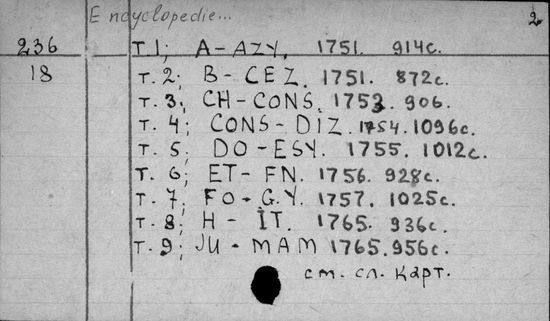 Encyclopedie... 2
236 T.1; A-AZY. 1751. 914с.
18 т.2; B-CEZ. 1751. 872с.
т.3; CH-CONS. 1753. 906.
т.4; CONS-DIZ. 1754. 1096с.
т.5; DO-ESY. 1755. 1012с.
т.6; ET-FN. 1756. 928с.
т.7; FO-G.Y. 1757. 1025с.
т.8; H-IT. 1765. 936с.
т.9; JU-MAM 1765. 956с.
см. сл. карт.